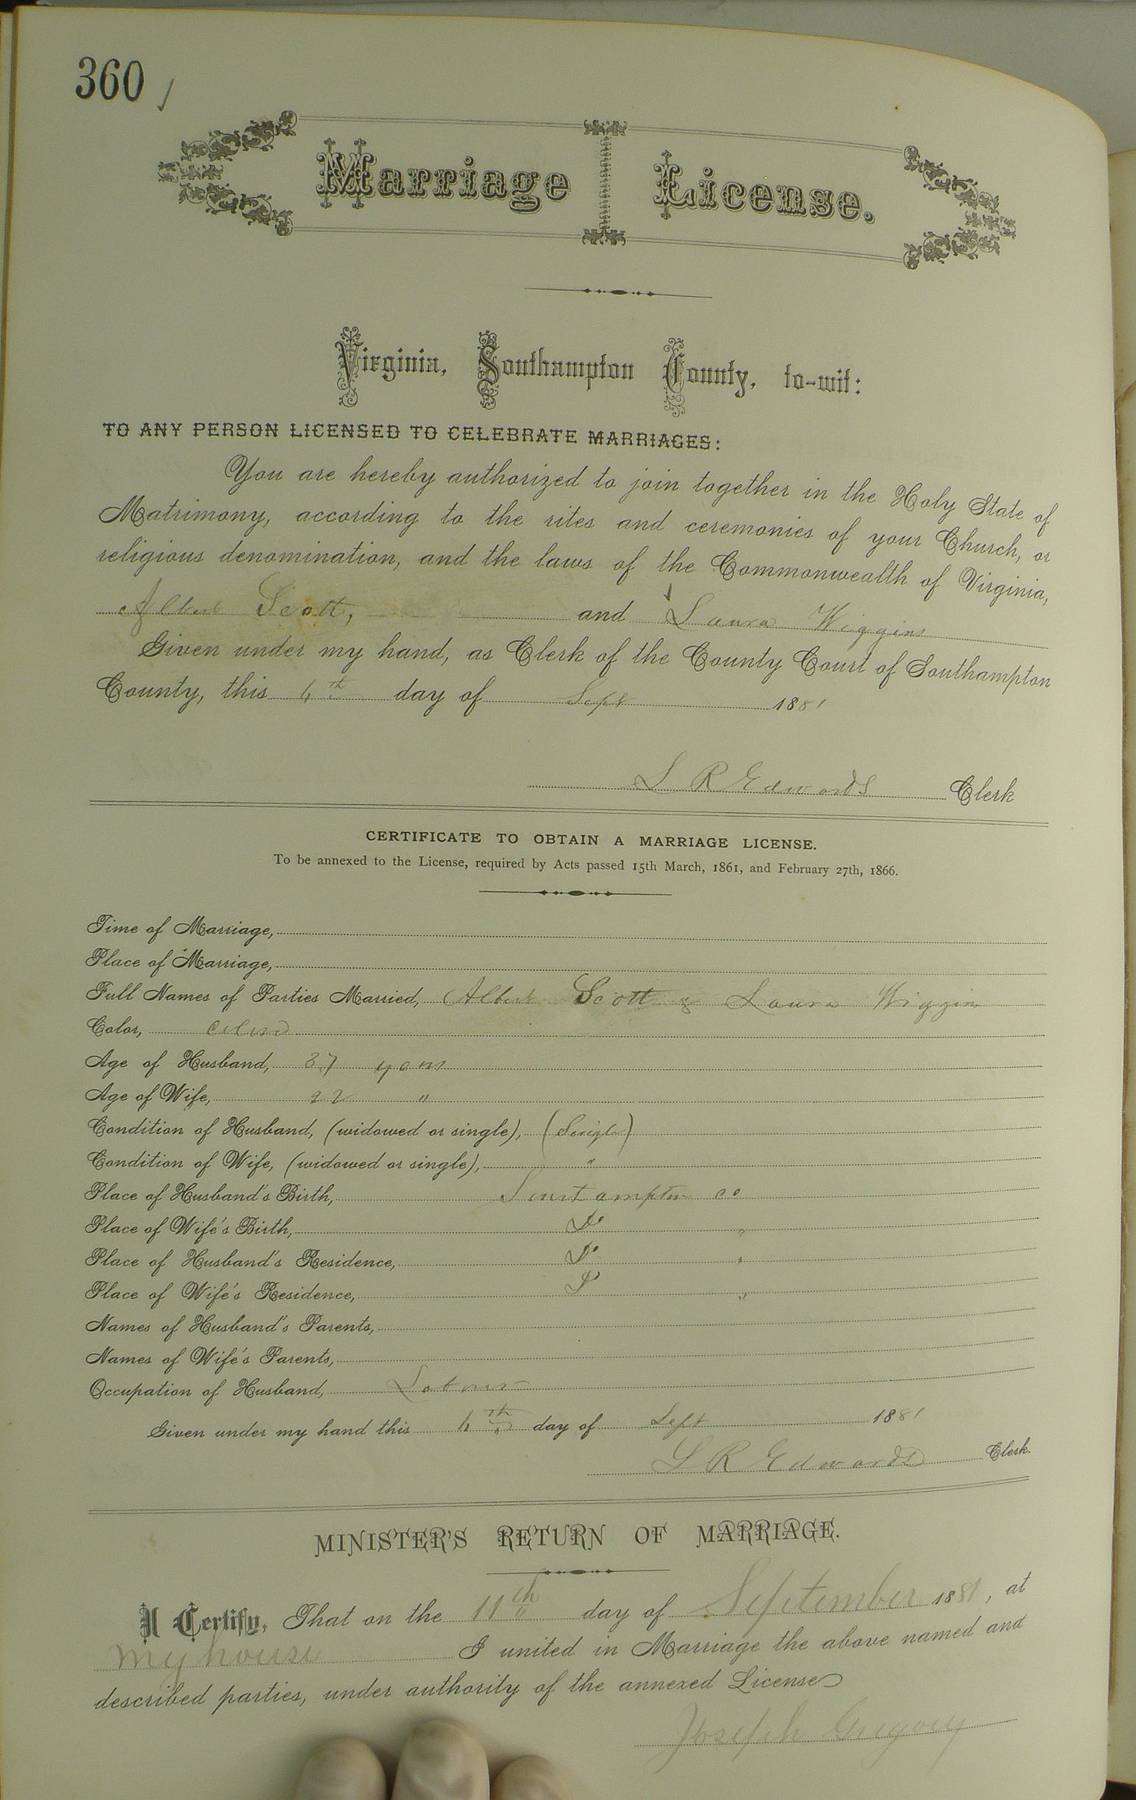 360
Marriage License.
Virginia, Southampton County, to-wit:
TO ANY PERSON LICENSED TO CELEBRATE MARRIAGES:
You are hereby authorized to join together in the Holy State of
Matrimony, according to the rites and ceremonies of your Church, or
religious denomination, and the laws of the Commonwealth of Virginia,
Albert Scott, and Laura Wiggins
Given under my hand, as Clerk of the County Court of Southampton
County, this 6th day of Sept 1881
L R Edwards Clerk
CERTIFICATE TO OBTAIN A MARRIAGE LICENSE.
To be annexed to the License, required by Acts passed 15th March, 1861, and February 27th, 1866.
Time of Marriage,
Place of Marriage,
Full Names of Parties Married, Albert Scott & Laura Wiggins
Color, Colord
Age of Husband, 37 years
Age of Wife, 22 "
Condition of Husband, (widowed or single), (Single)
Condition of Wife, (widowed or single), "
Place of Husband's Birth, Southampton co
Place of Wife's Birth, Do "
Place of Husband's Residence, Do "
Place of Wife's Residence, Do "
Names of Husband's Parents,
Names of Wife's Parents,
Occupation of Husband, Laborer
Given under my hand this 6th day of Sept 1881
L R Edwards Clerk.
MINISTER'S RETURN OF MARRIAGE.
I Certify, That on the 11th day of September 1881, at
my house I united in Marriage the above named and
described parties, under authority of the annexed License
Joseph Gregory